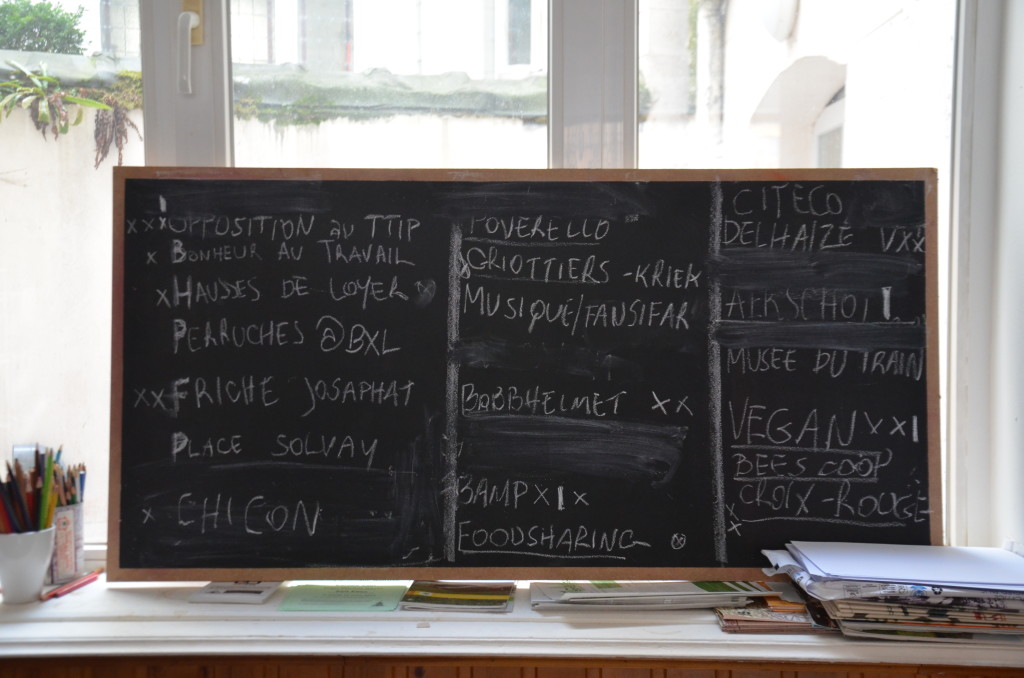 xxx OPPOSITION au TTIP
x BONHEUR AU TRAVAIL
x HAUSSES DE LOYER x
PERRUCHES @BXL
xx FRICHE JOSAPHAT
PLACE SOLVAY
x CHICON
POVERELLO
GRIOTTIERS - KRIEK
MUSIQUE/FANSIFAR
BOBBHELMET xx
BAMP x I x
FOODSHARING
CITECO
DELHAIZE Vxx
MUSEE DU TRAIN
VEGAN xx I
BEES COOP
CROIX-ROUGE
x
x